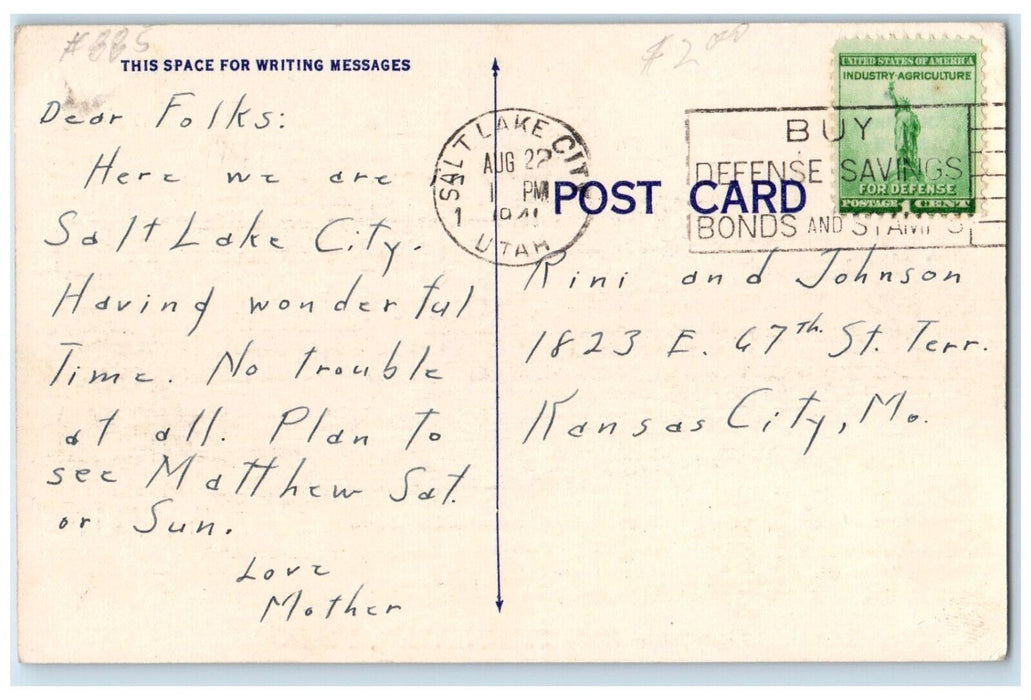 #885
$2.00
THIS SPACE FOR WRITING MESSAGES
Dear Folks:
Here we are
Salt Lake City.
Having wonderful
Time. No trouble
at all. Plan to
see Matthew Sat.
or Sun.
Love
Mother
SALT LAKE CITY
AUG 22
1 PM
1941
1
UTAH
POST CARD
UNITED STATES OF AMERICA
INDUSTRY·AGRICULTURE
FOR DEFENSE
POSTAGE 1 CENT
BUY
DEFENSE SAVINGS
BONDS AND STAMPS
Rini and Johnson
1823 E. 67th. St. Terr.
Kansas City, Mo.